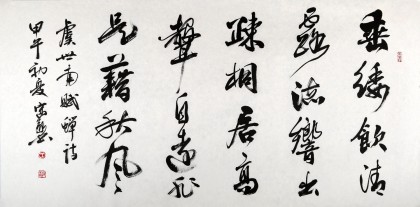 垂緌飲清
露流響出
疎桐居高
聲自遠非
是藉秋風
虞世南賦蟬詩
甲午初夏